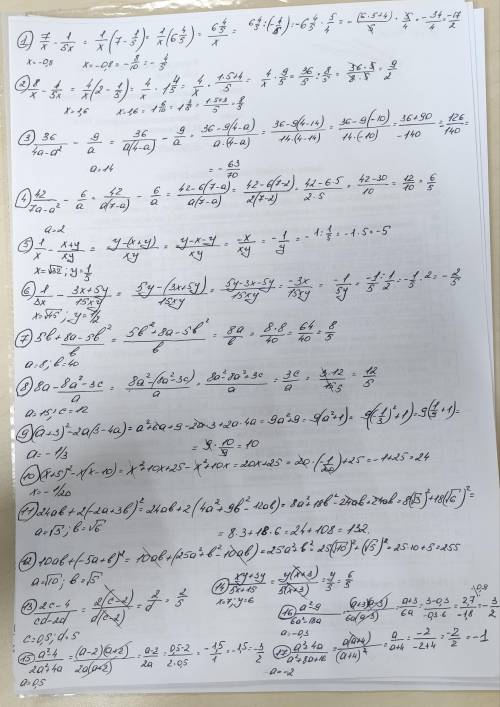 1) 7/x - 1/5x = 1/x (7 - 1/5) = 1/x (6 4/5) = 6 4/5 / x = 6 4/5 : (-4/5) = -6 4/5 · 5/4 = -(6·5+4)/5 · 5/4 = -34/4 = -17/2
x = -0,8 x = -0,8 = -8/10 = -4/5
2) 8/x - 1/5x = 4/x (2 - 1/5) = 4/x · 1 4/5 = 4/x · (1·5+4)/5 = 4/x · 9/5 = 36/5 : 8/5 = 36·5/8·5 = 9/2
x = 1,6 x = 1,6 = 1 6/10 = 1 3/5 = (1·5+3)/5 = 8/5
3) 36/(4a-a²) - 9/a = 36/a(4-a) - 9/a = (36-9(4-a))/a·(4-a) = (36-9(4-14))/14·(4-14) = (36-9(-10))/14·(-10) = (36+90)/-140 = 126/140 =
a = 14 = -63/70
4) 42/(7a-a²) - 6/a = 42/a(7-a) - 6/a = (42-6(7-a))/a(7-a) = (42-6(7-2))/2(7-2) = (42-6·5)/2·5 = (42-30)/10 = 12/10 = 6/5
a = 2
5) 1/x - (x+y)/xy = (y-(x+y))/xy = (y-x-y)/xy = -x/xy = -1/y = -1 : 1/5 = -1·5 = -5
x = √32 ; y = 1/5
6) 1/3x - (3x+5y)/15xy = (5y-(3x+5y))/15xy = (5y-3x-5y)/15xy = -3x/15xy = -1/5y = -1/5 : 1/2 = -1/5 · 2 = -2/5
x = √45 ; y = 1/2
7) 5b + (8a-5b²)/b = (5b²+8a-5b²)/b = 8a/b = 8·8/40 = 64/40 = 8/5
a = 8 ; b = 40
8) 8a - (8a²-3c)/a = (8a²-(8a²-3c))/a = (8a²-8a²+3c)/a = 3c/a = 3·12/15 = 12/5
a = 15 ; c = 12
9) (a+3)²-2a(3-4a) = a²+6a+9-2a·3+2a·4a = 9a²+9 = 9(a²+1) = 9((-1/3)²+1) = 9(1/9+1) =
a = -1/3 = 9·10/9 = 10
10) (x+5)²-x(x-10) = x²+10x+25-x²+10x = 20x+25 = 20·(-1/20)+25 = -1+25 = 24
x = -1/20
11) 24ab+2(-2a+3b)² = 24ab+2(4a²+9b²-12ab) = 8a²+18b²-24ab+24ab = 8(√3)²+18(√6)² =
a = √3 ; b = √6 = 8·3+18·6 = 24+108 = 132
12) 10ab+(-5a+b)² = 10ab+(25a²+b²-10ab) = 25a²+b² = 25(√10)²+(√5)² = 25·10+5 = 255
a = √10 ; b = √5
13) (2c-4)/(cd-2d) = 2(c-2)/d(c-2) = 2/d = 2/5
c = 0,5 ; d = 5
14) (xy+3y)/(5x+15) = y(x+3)/5(x+3) = y/5 = 6/5
x = 7 ; y = 6
16) (a²-9)/(6a²-18a) = (a+3)(a-3)/6a(a-3) = (a+3)/6a = (3-0,3)/-0,3·6 = 2,7/-1,8 = -3/2
a = -0,3
15) (a²-4)/(2a²+4a) = (a-2)(a+2)/2a(a+2) = (a-2)/2a = (0,5-2)/2·0,5 = -1,5/1 = -1,5 = -3/2
a = 0,5
17) (a²+4a)/(a²+8a+16) = a(a+4)/(a+4)² = a/(a+4) = -2/(-2+4) = -2/2 = -1
a = -2